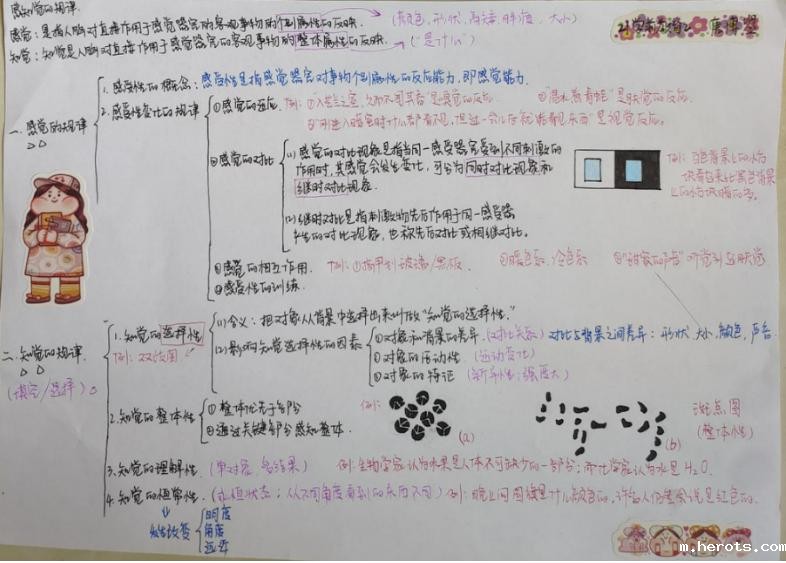 感知觉的规律
感觉：是指人脑对直接作用于感觉器官的客观事物的个别属性的反映 (颜色，形状，气味，大小)
知觉：知觉是人脑对直接作用于感觉器官的客观事物的整体属性的反映。("是什么")
一、感觉的规律
1.感受性的概念：感受性是指感觉器官对事物个别属性的反应能力，即感觉能力
2.感受性变化的规律
①感觉的适应 例：①"入芝兰之室，久而不闻其香"是嗅觉的反应 ②"温水煮青蛙"是肤觉的反应
③"刚进入暗室时什么都看不见，但过一会儿后就能看见东西"是视觉反应。
②感觉的对比
(1)感觉的对比现象是指当同一感受器官受到不同刺激的
作用时，其感觉会发生变化，可分为同时对比现象和
继时对比现象。
例：白色背景上的小方
块看起来比黑色背景
上的小方块暗的多。
(2)继时对比是指刺激物先后作用于同一感受器
产生的对比现象，也称先后对比或相继对比。
③感觉的相互作用. 例：①指甲刮玻璃/黑板 ②暖色系，冷色系 听觉到肤觉
④感受性的训练.
二、知觉的规律.
(填空/选择)
1.知觉的选择性
例：双关图
(1)含义：把对象从背景中选择出来叫做"知觉的选择性."
(2)影响知觉选择性的因素
①对象和背景的差异 (对比关系) 对比与背景之间差异：形状，大小，颜色，声音.
②对象的活动性 (运动变化)
③对象的特征 (新异性；强度大)
2.知觉的整体性
①整体优先于部分
②通过关键部分感知整体.
例：
(a)
(b)
斑点图
(整体性)
3.知觉的理解性 (单对象，多结果) 例：生物学家认为水是人体不可缺少的一部分；而化学家认为水是H₂O.
4.知觉的恒常性. 例：晚上问国旗是什么颜色的，许多人仍然会说是红色的.
知觉改变
明度
角度
远近
m.herots.com